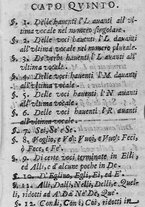 CAPO QVINTO.
§. 1. Delle voci hauenti l'L auanti all'vl
tima vocale nel numero singolare.
§. 2. Delle voci hauenti l'L auanti
all'vltima vocale nel numero plurale.
§. 3. De' verbi hauenti l'L auanti all'vl
tima vocale.
§. 4. Delle voci hauenti l'N auanti al
l'vltima vocale.
§. 5. Delle voci hauenti l'M auanti al
l'vltima vocale.
§. 6. Delle voci hauenti l'R auanti al
l'vltima vocale.
§. 7. Sei, Se', Se.
§. 8. Voglio, e Vo'. Vuoi, e Vuo'. Feci,
e Fe'.
§. 9. Di voci terminate in
Elli, ed alcune ridotte all'
§. 10. L'Egli, Eglino, Egli, Ei, E'.
§. 11. Alli, Dalli, Nelli, Delli, Quelli,
Belli, e
§. 12. Con, Coi, ridotti in